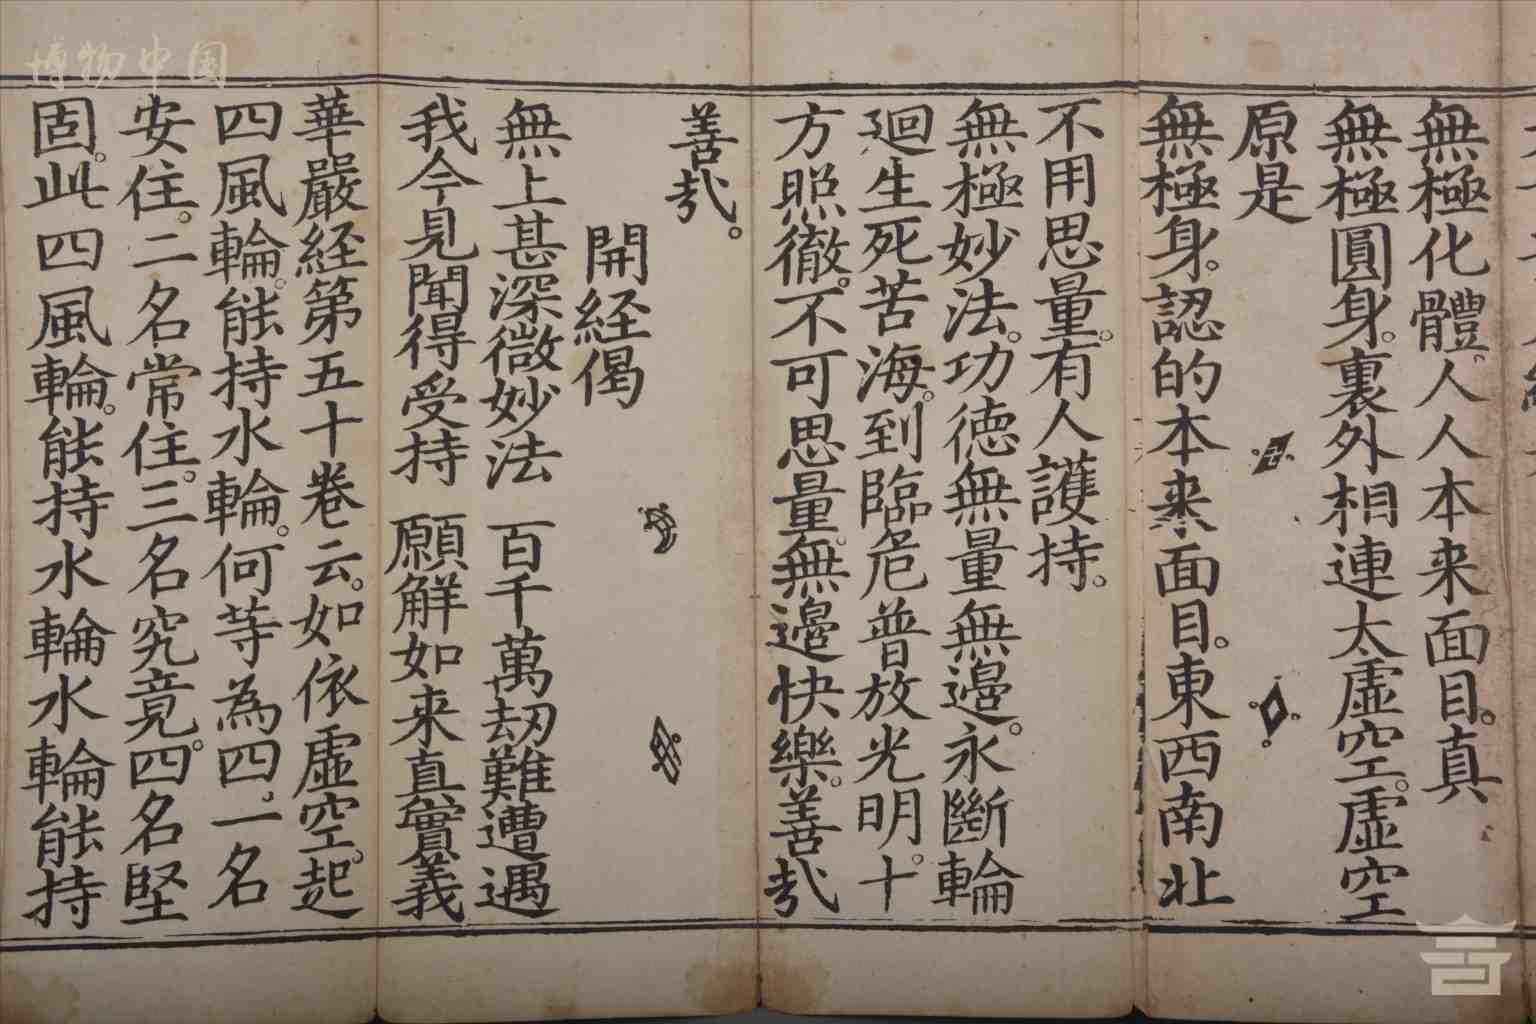 無極化體。人人本来面目。真
無極圓身。裏外相連太虚空。虚空
原是
無極身。認的本来面目。東西南北
不用思量。有人護持。
無極妙法。功徳無量無邉。永斷輪
廻生死苦海。到臨危普放光明。十
方照徹。不可思量。無邉快樂。善哉
善哉。
開経偈
無上甚深微妙法 百千萬刼難遭遇
我今見聞得受持 願解如来真實義
華嚴経第五十卷云。如依虚空。起
四風輪。能持水輪。何等為四。一名
安住。二名常住。三名究竟。四名堅
固。此四風輪。能持水輪水輪能持
博物中国